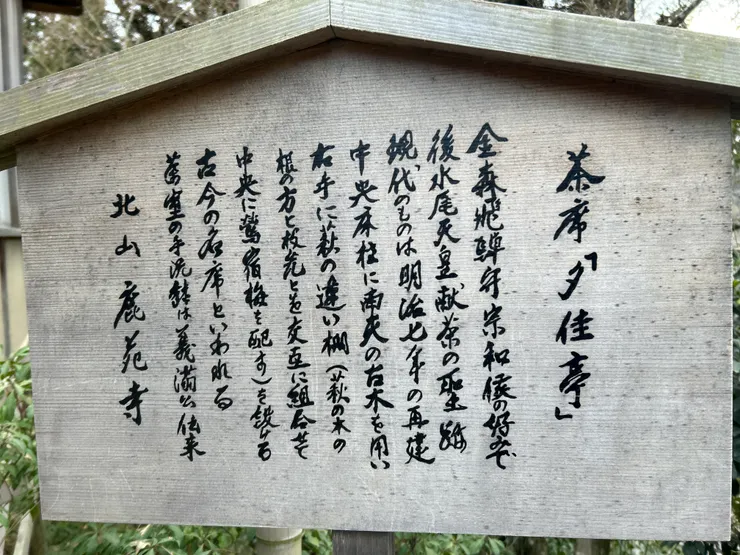 茶席「夕佳亭」
金森飛騨守宗和侯の好みで
後水尾天皇献茶の聖跡
現代のものは明治七年の再建
中央床柱に南天の古木を用い
右手に萩の違い棚(萩の木の
根の方と枝先とを交互に組合せて
中央に鶯宿梅を配す)を設ける
古今の名席といわれる
茶室の手洗鉢は義満公伝来
北山 鹿苑寺